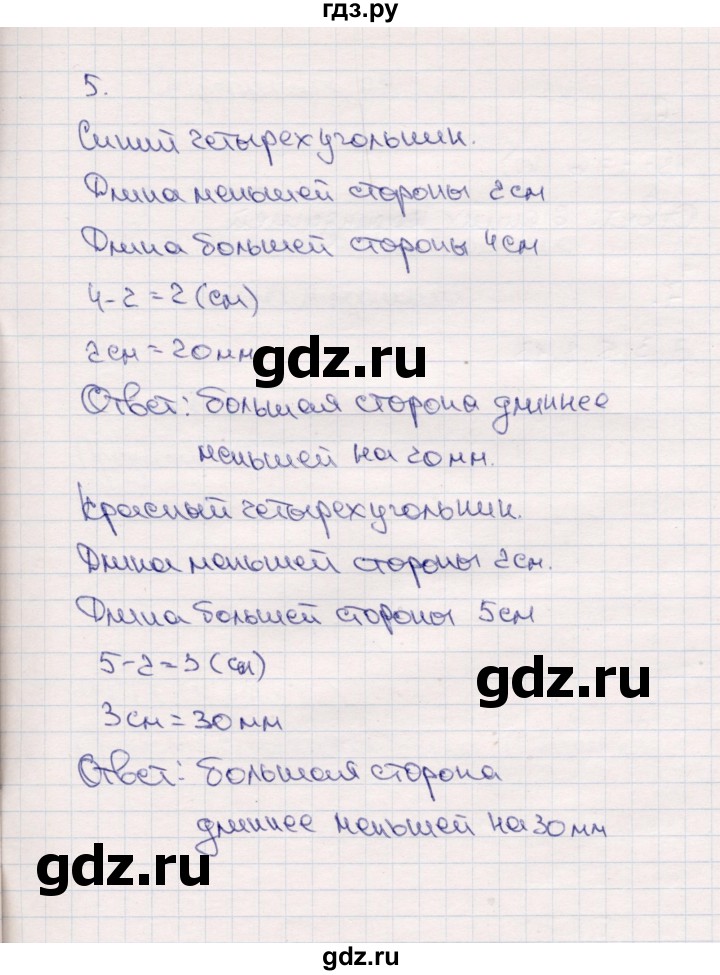 гдз.ру
5.
Синий четырехугольник.
Длина меньшей стороны 2см
Длина большей стороны 4см
4-2=2(см)
2см=20мм
gdz.ru
Ответ: большая сторона длиннее
меньшей на 20мм.
Красный четырехугольник.
Длина меньшей стороны 2см.
Длина большей стороны 5см
5-2=3(см)
gdz.ru
3см=30мм
Ответ: большая сторона
длиннее меньшей на 30мм
gdz.ru
gdz.ru